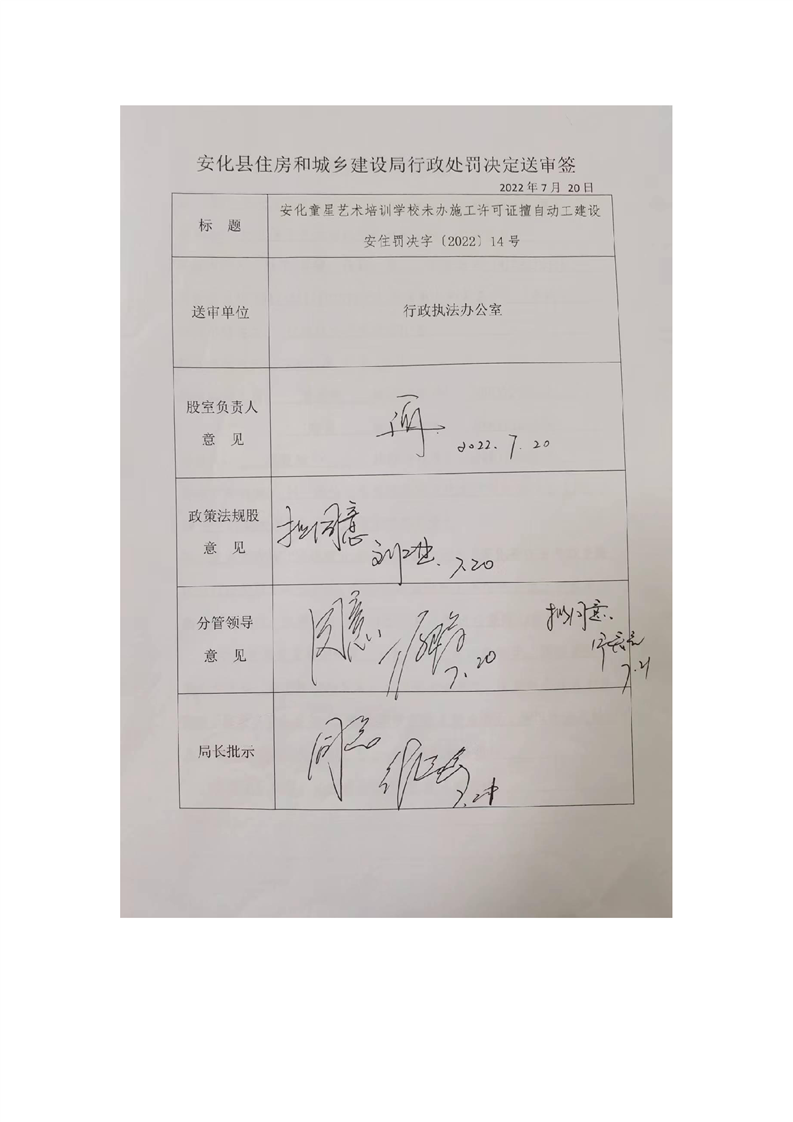 安化县住房和城乡建设局行政处罚决定送审签
2022年7月 20日
标 题
安化童星艺术培训学校未办施工许可证擅自动工建设
安住罚决字〔2022〕14号
送审单位
行政执法办公室
股室负责人
意 见
2022.7.20
政策法规股
意 见
拟同意
7.20
分管领导
意 见
同意
7.20
拟同意.
7.21
局长批示
同意